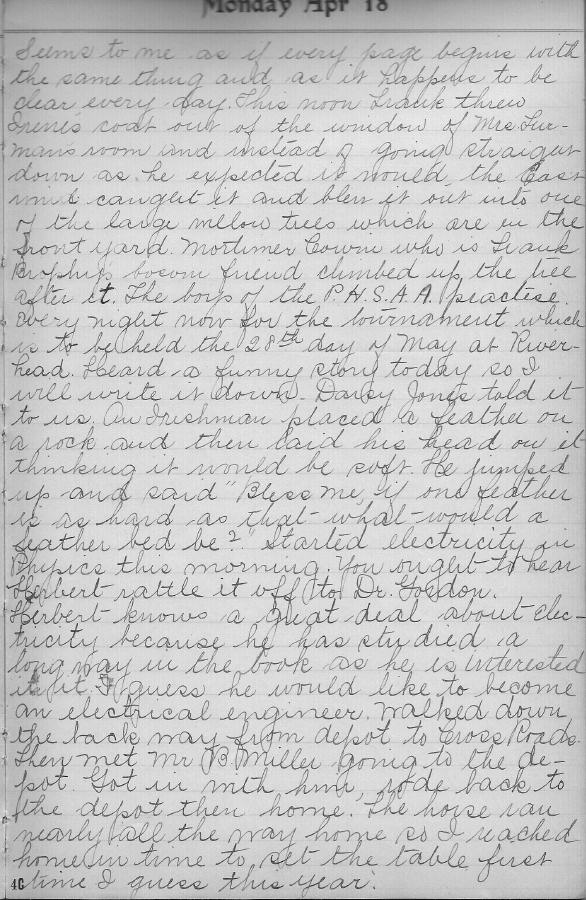 Monday Apr 18
Seems to me as if every page begins with
the same thing and as it happens to be
clear every day. This noon Frank threw
Irene's coat out of the window of Mrs. Fur-
man's room and instead of going straight
down as he expected it would, the East
wind caught it and blew it out into one
of the large willow trees which are in the
front yard. Mortimer Cowin who is Frank
bosom friend climbed up the tree
after it. The boys of the P.H.S.A.A. practise
every night now for the tournament which
is to be held the 28th day of May at River-
head. Heard a funny story today so I
will write it down. Daisy Jones told it
to us. An Irishman placed a feather on
a rock and then laid his head on it
thinking it would be soft. He jumped
up and said "Bless me, if one feather
is as hard as that what would a
feather bed be?" Started electricity in
Physics this morning. You ought to hear
Herbert rattle it off to Dr. Gordon.
Herbert knows a great deal about elec-
tricity because he has studied a
long way in the book as he is interested
in it. I guess he would like to become
an electrical engineer. Walked down
the back way from depot to Cross Roads.
Then met Mr B. Miller going to the de-
pot. Got in with him, rode back to
the depot then home. The horse ran
nearly all the way home so I reached
home in time to set the table first
time I guess this year.
46